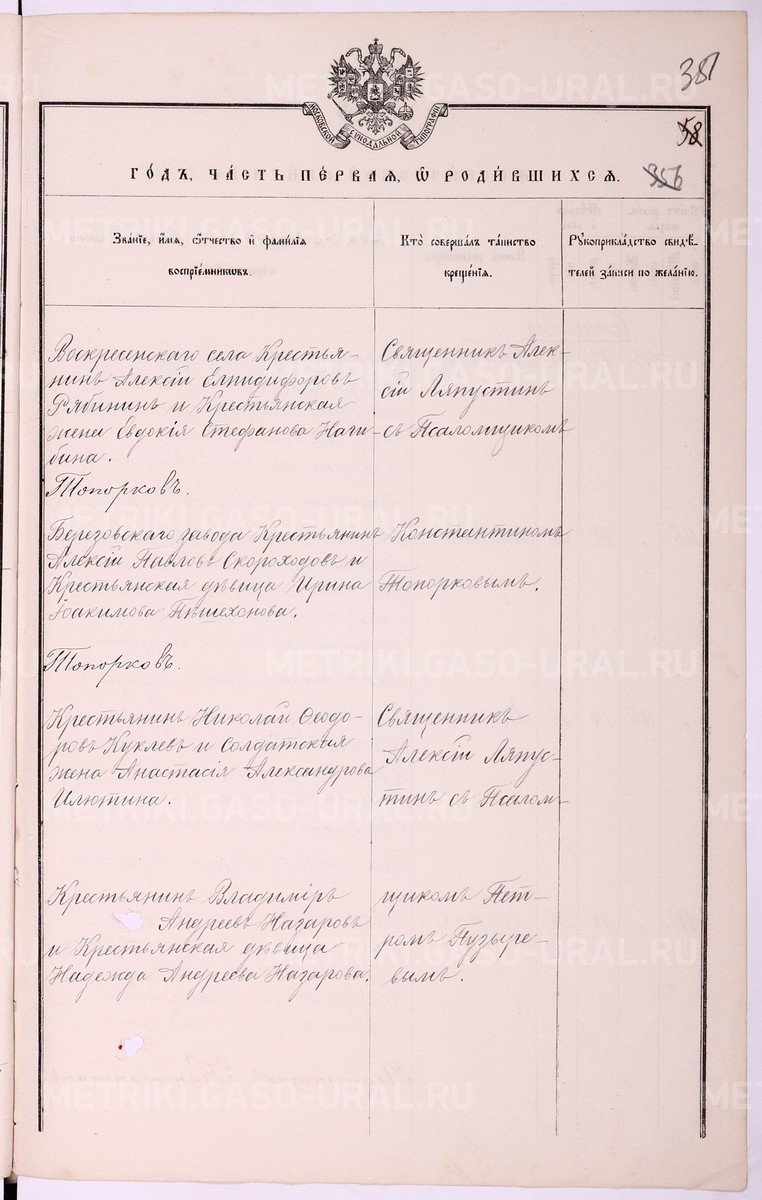 387
МОСКОВСКОЙ СѴНОДАЛЬНОЙ ТИПОГРАФІИ
58
356
ГО́ДЪ, ЧА́СТЬ ПЕ́РВАЯ, Ѽ РОДИ́ВШИХСЯ.
Зва́нїе, и́мя, ѻ҆́тчество и҆ фами́лїя
воспрїе́мникѡвъ.
Кто̀ соверша́лъ та́инство
креще́нїя.
Рꙋкоприкла́дство свидѣ́-
телей за́писи по жела́нїю.
Воскресенскаго села Крестья-
нинъ Алексій Елпидифоровъ
Рябининъ и Крестьянская
жена Евдокія Стефанова Наги-
бина.
Топорковъ.
Священникъ Алек-
сій Ляпустинъ
съ Псаломщикомъ
Березовскаго завода Крестьянинъ
Алексій Павловъ Скороходовъ и
Крестьянская дѣвица Ирина
Іоакимова Пѣшехонова.
Топорковъ.
Константиномъ
Топорковымъ.
Крестьянинъ Николай Ѳеодо-
ровъ Куклевъ и Солдатская
жена Анастасія Александрова
Илютина.
Священникъ
Алексій Ляпус-
тинъ съ Псалом-
Крестьянинъ Владиміръ
Андреевъ Назаровъ
и Крестьянская дѣвица
Надежда Андреева Назарова.
щикомъ Пет-
ромъ Пузыре-
вымъ.
METRIKI.GASO-URAL.RU